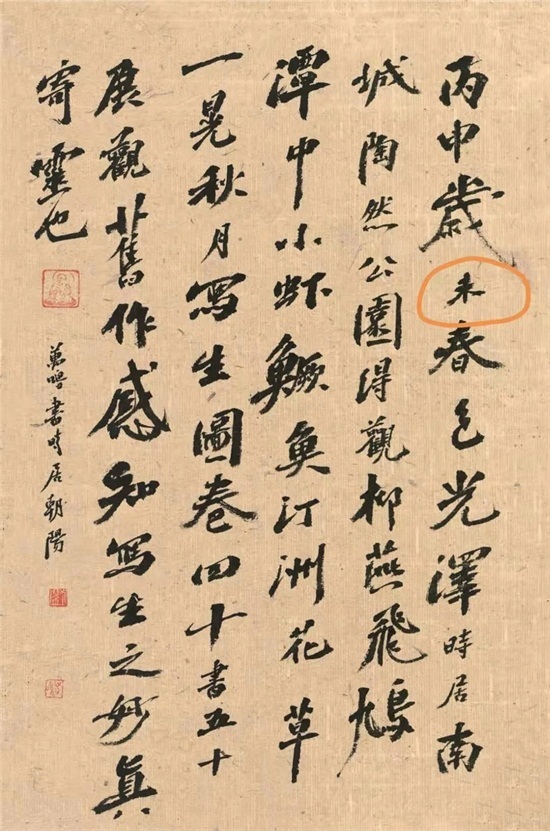 丙申歲未春色光澤時居南
城陶然公園得觀柳燕飛鳩
潭中小虾鱖魚汀洲花草
一晃秋月寫生圖卷四十書五十
展觀舊作感知寫生之妙真
寄靈也
書時居朝陽